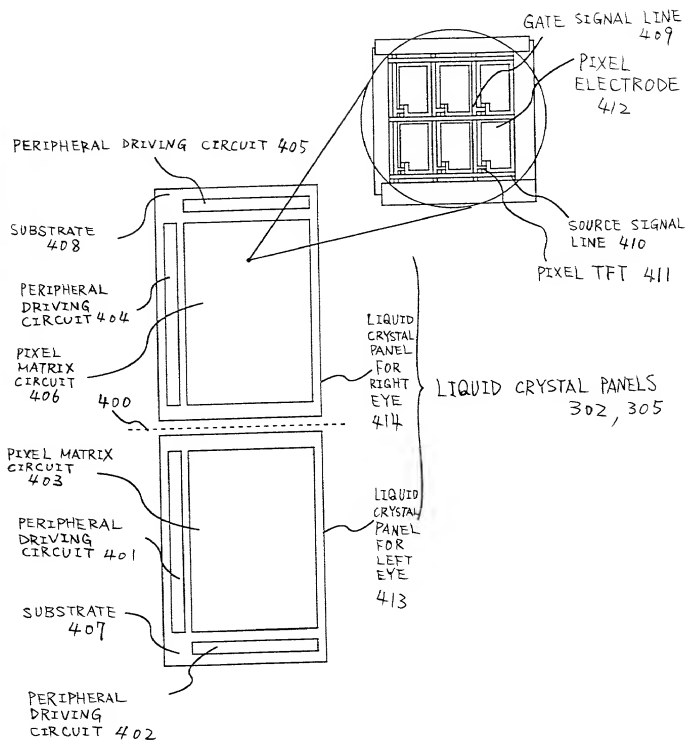 GATE SIGNAL LINE
409
PIXEL
ELECTRODE
412
PERIPHERAL DRIVING CIRCUIT 405
SUBSTRATE
408
SOURCE SIGNAL
LINE 410
PIXEL TFT 411
PERIPHERAL
DRIVING
CIRCUIT 404
PIXEL
MATRIX
CIRCUIT
406
400
LIQUID
CRYSTAL
PANEL
FOR
RIGHT
EYE
414
LIQUID CRYSTAL PANELS
302, 305
PIXEL MATRIX
CIRCUIT
403
PERIPHERAL
DRIVING
CIRCUIT 401
LIQUID
CRYSTAL
PANEL
FOR
LEFT
EYE
413
SUBSTRATE
407
PERIPHERAL
DRIVING
CIRCUIT 402